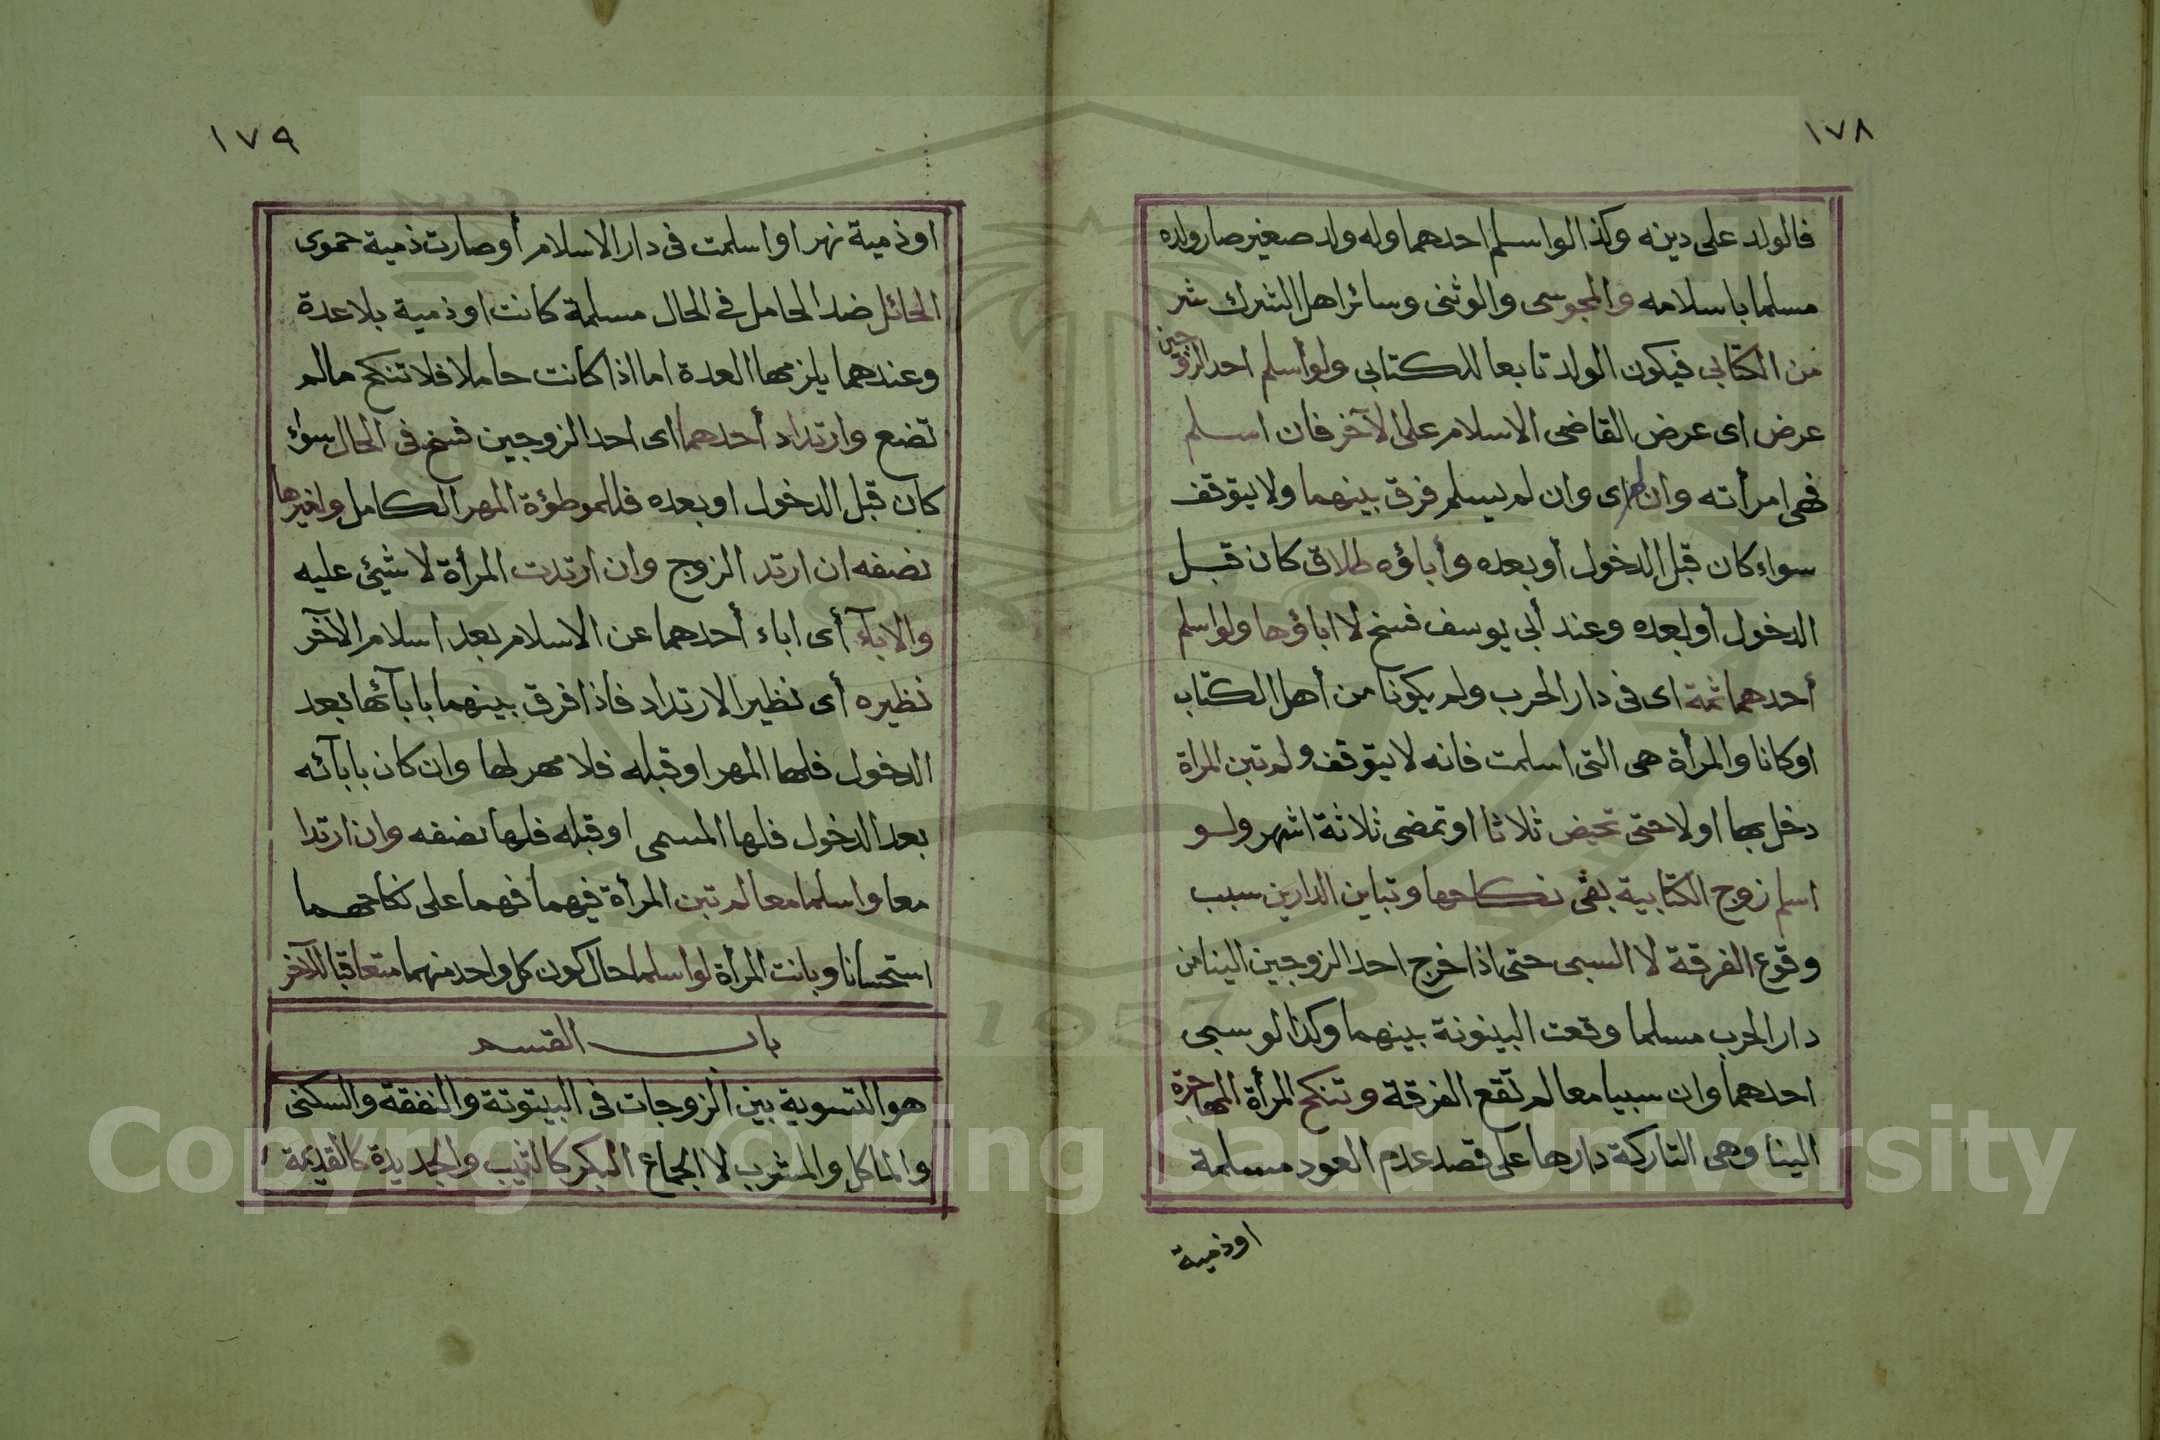 ١٧٨
فالولد على دينه وكذا لو اسلم احدهما وله ولد صغير صار ولده
مسلما باسلامه والمجوسى والوثنى وسائر اهل الشرك شر
من الكتابى فيكون الولد تابعا للكتابى ولو أسلم احد الزوجين
عرض اى عرض القاضى الاسلام على الآخر فان اسلم
فهى امرأته وان لم اى وان لم يسلم فرق بينهما ولا يتوقف
سواء كان قبل الدخول أو بعده وأباؤه طلاق كان قبل
الدخول أو بعده وعند أبى يوسف فسخ لا اباؤها ولو اسلم
أحدهما ثمة اى فى دار الحرب ولم يكونا من أهل الكتاب
او كانا والمرأة هى التى اسلمت فانه لا يتوقف ولم تبن المراة
دخل بها اولا حتى تحيض ثلاثا او تمضى ثلاثة اشهر ولو
اسلم زوج الكتابية بقى نكاحها وتباين الدارين سبب
وقوع الفرقة لا السبى حتى اذا خرج احد الزوجين الينا من
دار الحرب مسلما وقعت البينونة بينهما وكذا لو سبى
احدهما وان سبيا معا لم تقع الفرقة وتنكح المرأة المهاجرة
الينا وهى التاركة دارها على قصد عدم العود مسلمة
او ذمية
١٧٩
او ذمية نهر او اسلمت فى دار الاسلام أو صارت ذمية حموى
الحائل ضد الحامل فى الحال مسلمة كانت او ذمية بلا عدة
وعندهما يلزمها العدة اما اذا كانت حاملا فلا تنكح ما لم
تضع وارتداد أحدهما اى احد الزوجين فسخ فى الحال سواء
كان قبل الدخول او بعده فللموطؤة المهر الكامل ولغيرها
نصفه ان ارتد الزوج وان ارتدت المرأة لا شيئ عليه
والابآء أى اباء أحدهما عن الاسلام بعد اسلام الآخر
نظيره أى نظير الارتداد فاذا فرق بينهما بابآئها بعد
الدخول فلها المهر او قبله فلا مهر لها وان كان بابآئه
بعد الدخول فلها المسمى او قبله فلها نصفه وان ارتدا
معا واسلما معا لم تبن المرأة فيهما فهما على نكاحهما
استحسانا وبانت المرأة لو اسلما حال كون كل واحد منهما متعاقبا للآخر
باب القسم
هو التسوية بين الزوجات فى البيتوتة والنفقة والسكنى
والماكل والمشرب لا الجماع البكر كالثيب والجديدة كالقديمة
Copyright © King Saud University
1957